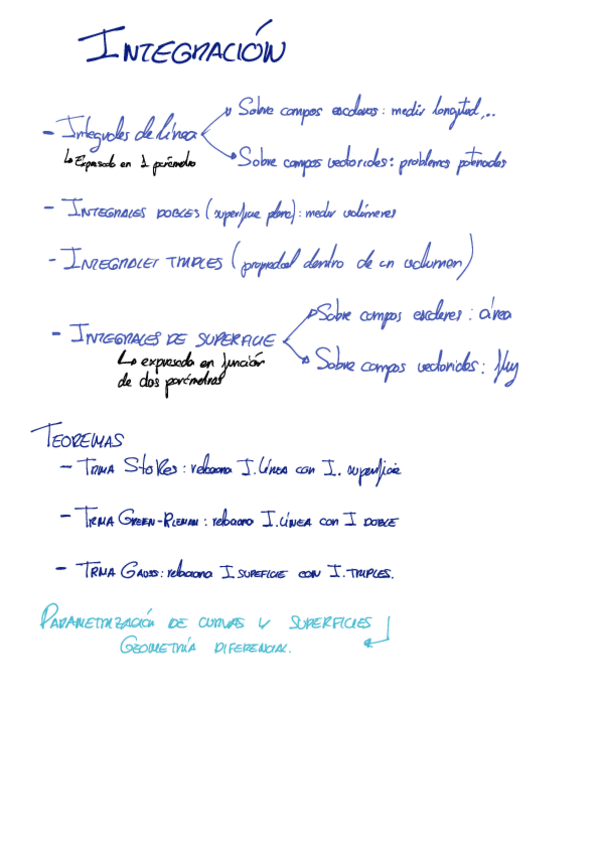 INTEGRACIÓN
- Integrales de línea
Sobre campos escalares: medir longitud,..
Sobre campos vectoriales: problemas
↳ Expresado en 1 parámetro
- INTEGRALES DOBLES (superficie plana): medir volúmenes
- INTEGRALES TRIPLES (propiedad dentro de un volumen)
- INTEGRALES DE SUPERFICIE
Sobre campos escalares: área
Sobre campos vectoriales:
↳ expresada en función
de dos parámetros
TEOREMAS
- TRMA Stokes: relaciona I. Línea con I. superficie
- TRMA GREEN-RIEMAN: relaciona I. LÍNEA CON I DOBLE
- TRMA GAUSS: relaciona I SUPEFICIE CON I. TRIPLES.
PARAMETRIZACIÓN DE CURVAS Y SUPERFICIES
GEOMETRÍA DIFERENCIAL.